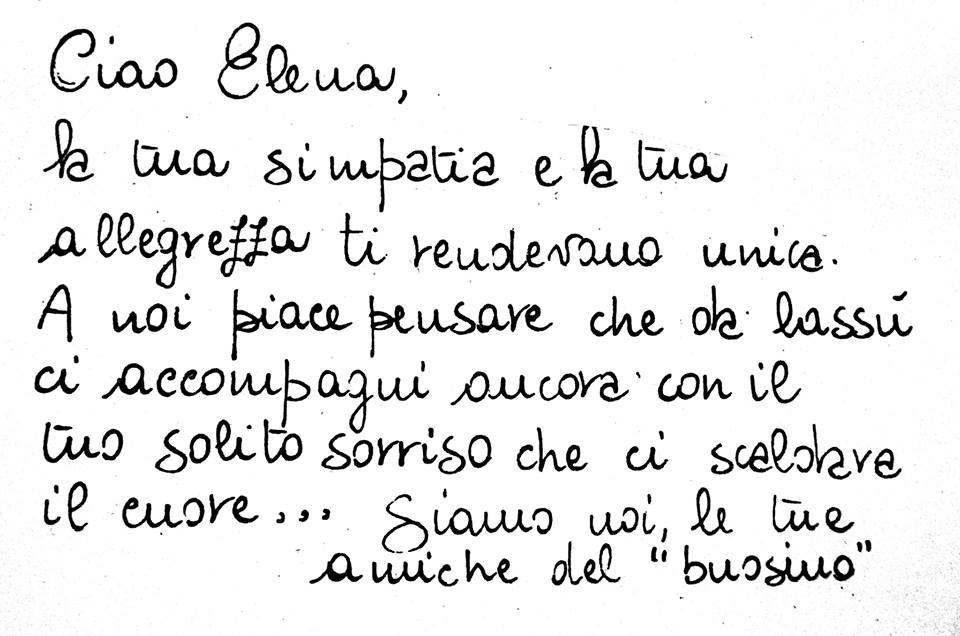 Ciao Elena,
la tua simpatia e la tua
allegrezza ti rendevano unica.
A noi piace pensare che da lassù
ci accompagni ancora con il
tuo solito sorriso che ci scaldava
il cuore... Siamo noi, le tue
amiche del "buosino"